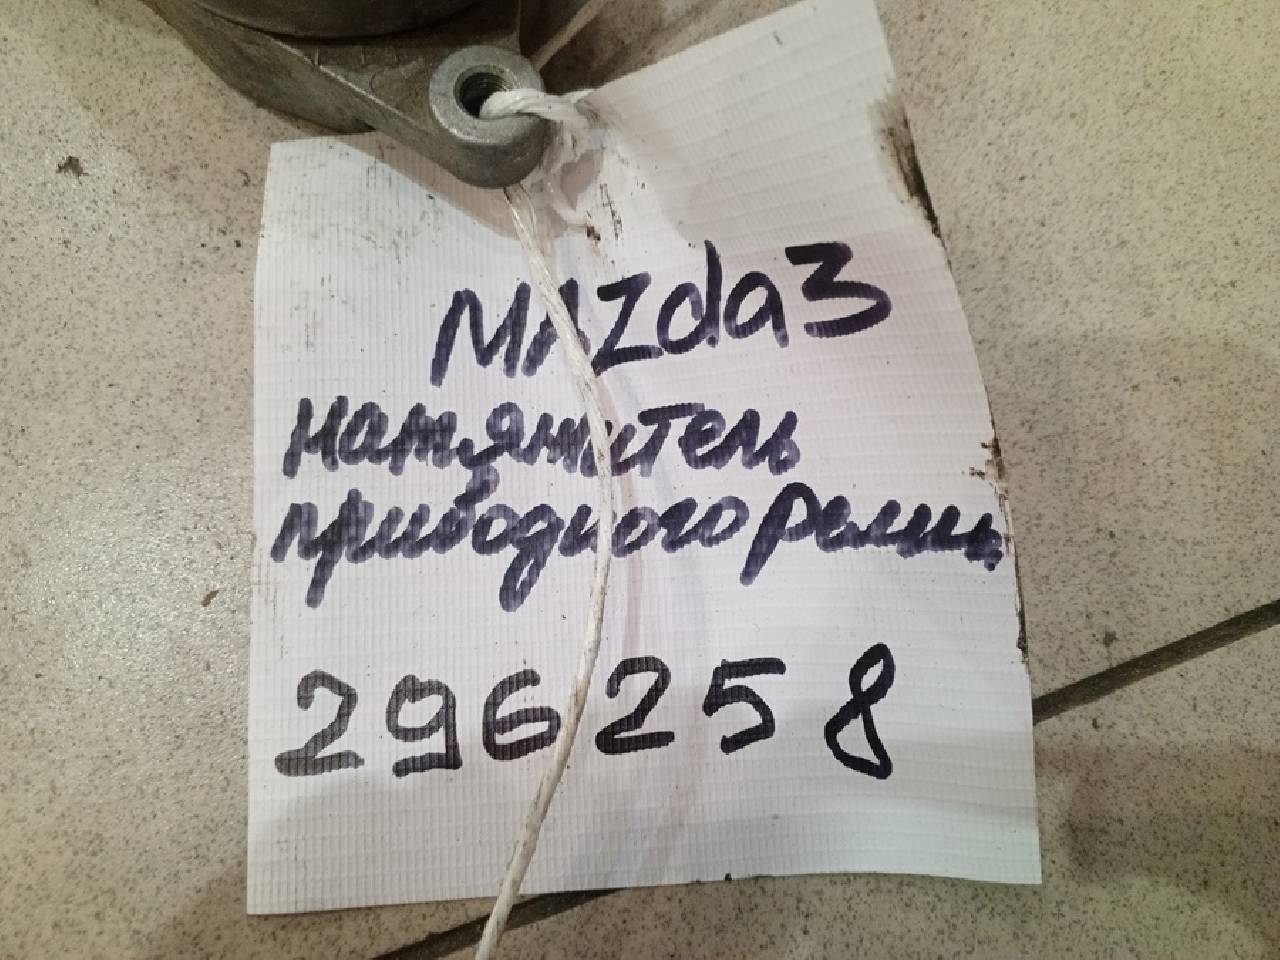 MAZda3
натяжитель
приводного ремня
296258